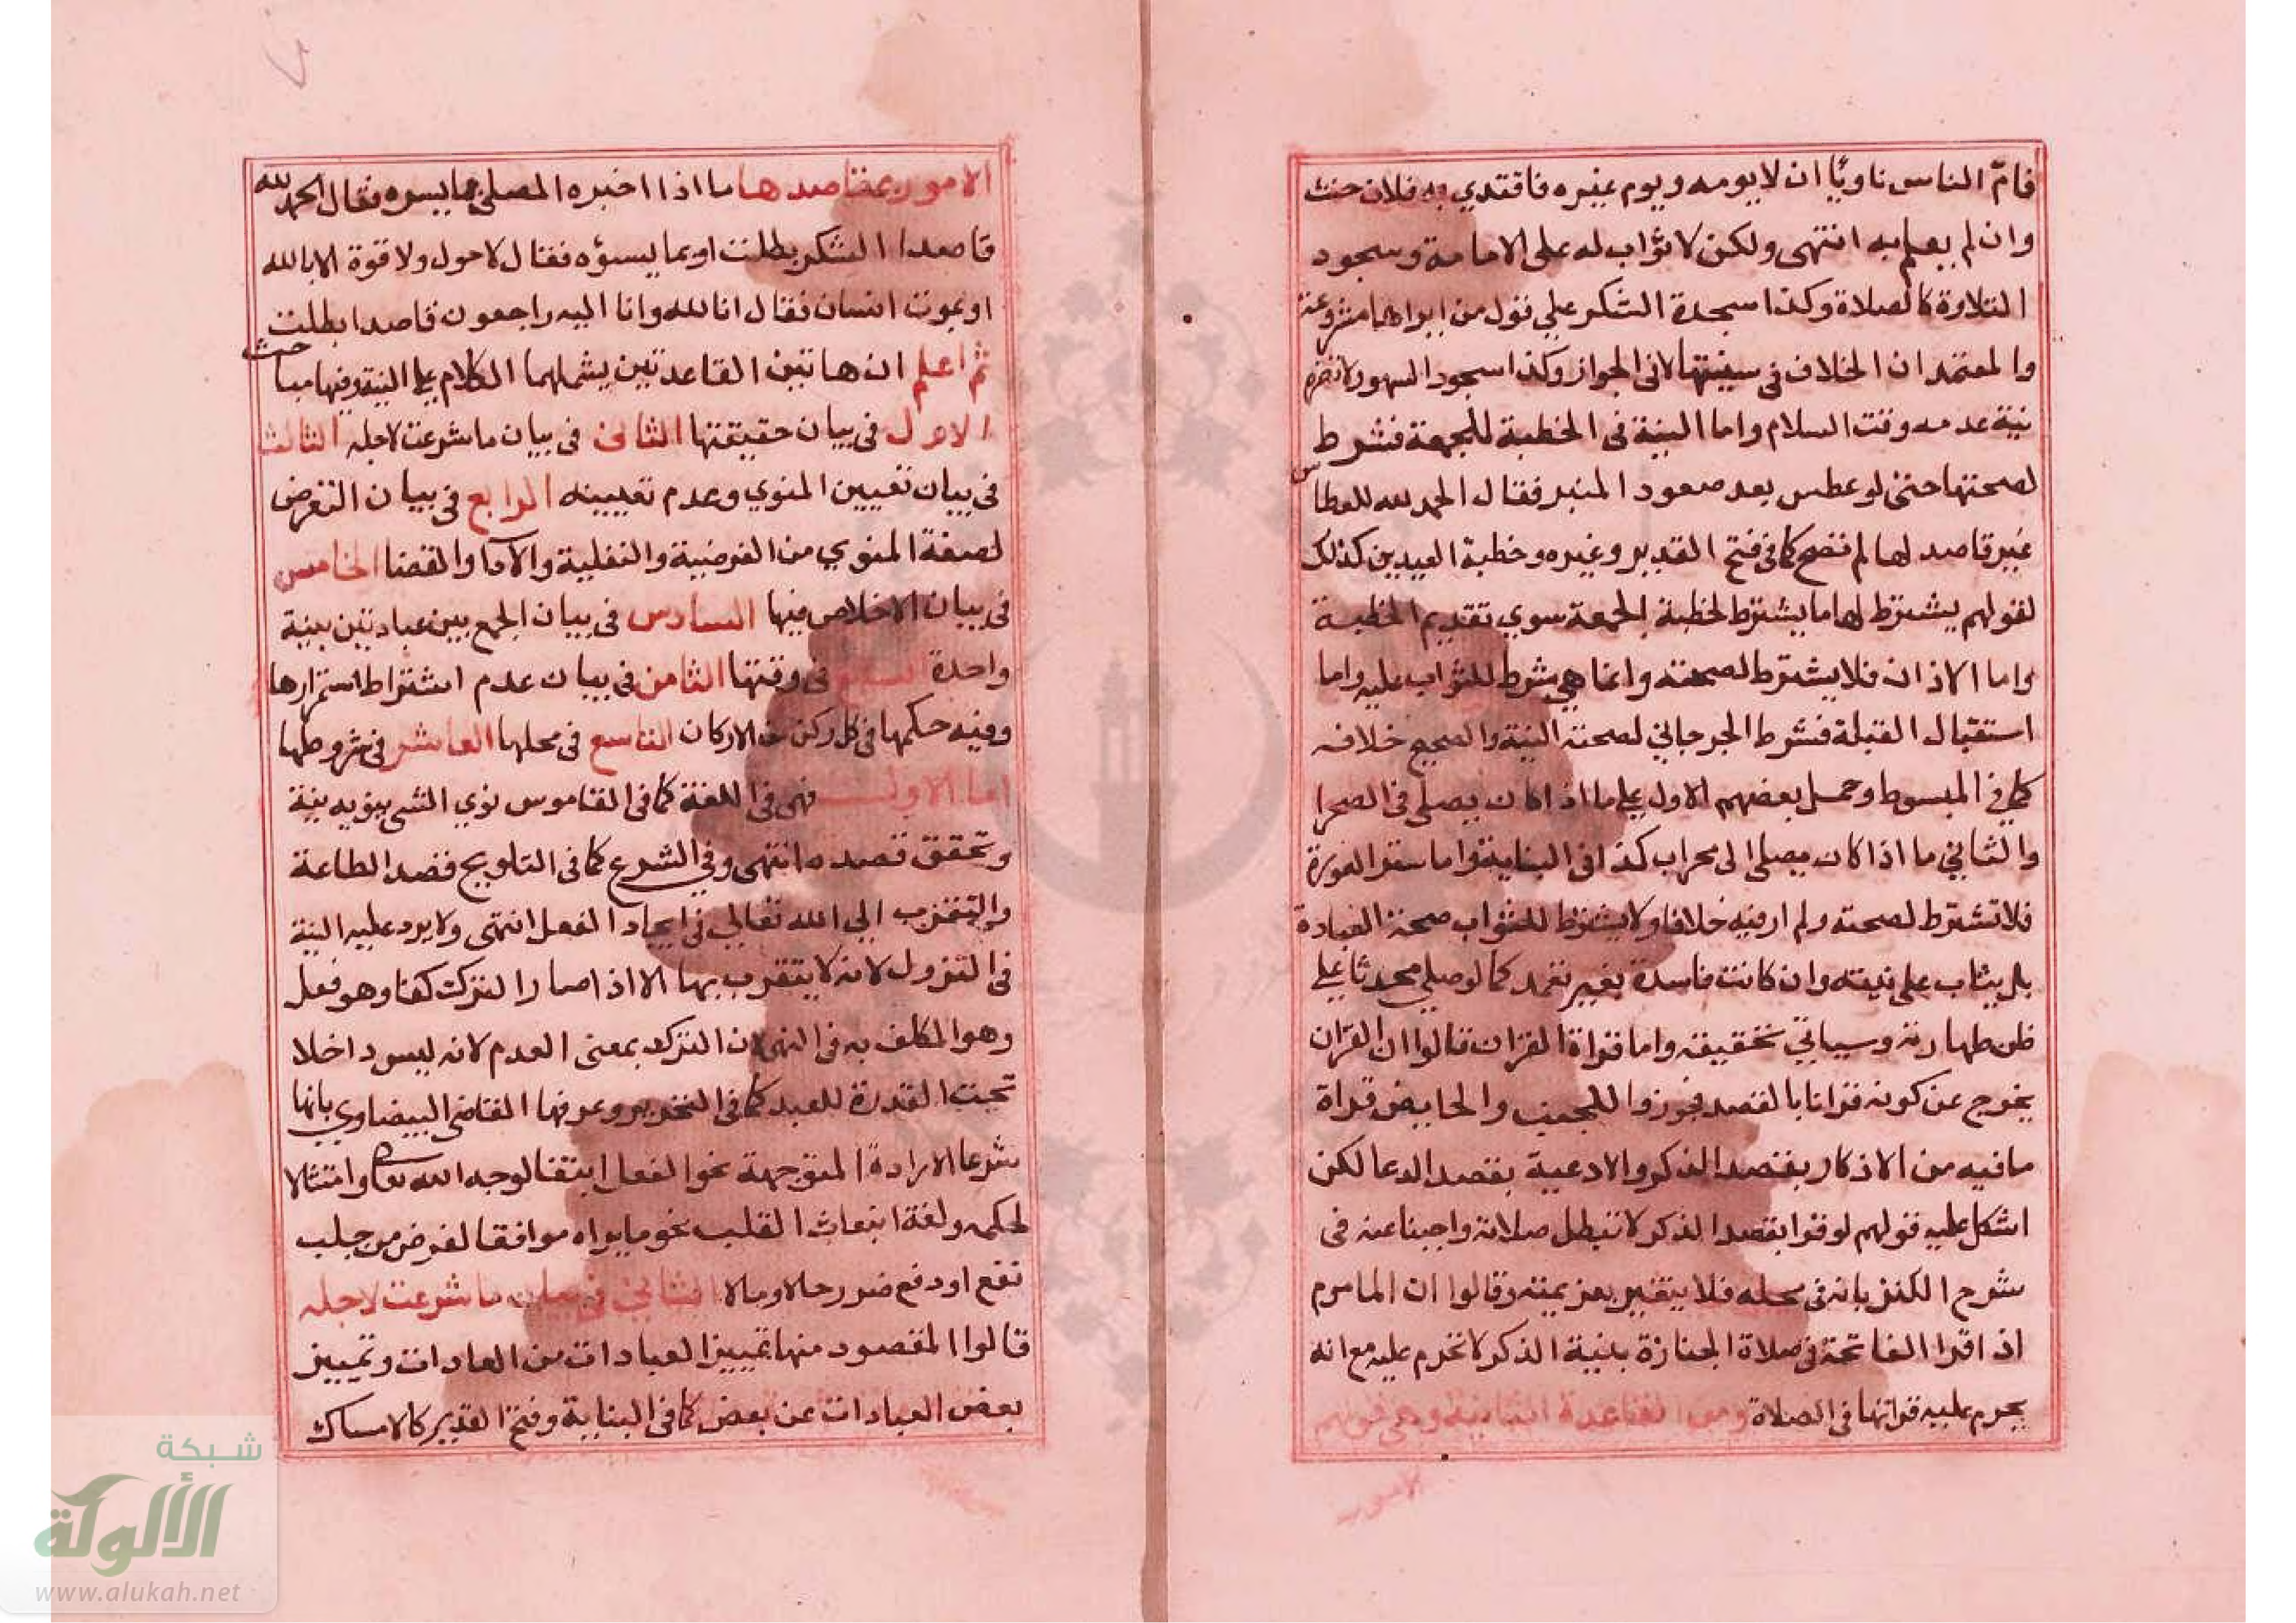 فامّ الناس ناويًا ان لا يومه ويوم غيره فاقتدي به فلان حنث
وان لم يعلم به انتهى ولكن لا ثواب له على الامامة وسجود
التلاوة كالصلاة وكذا سجدة الشكر علي قول من ايراها مشروعة
والمعتمد ان الخلاف في سنيتها لا في الجواز وكذا سجود السهو ولا تضره
نية عدمه وقت السلام واما النية في الخطبة للجمعة فشرط
لصحتها حتى لو عطس بعد صعود المنبر فقال الحمد لله للعطاس
غير قاصد لها لم تصح كما في فتح القدير وغيره وخطبة العيدين كذلك
لقولهم يشترط لها ما يشترط لخطبة الجمعة سوي تقديم الخطبة
واما الاذان فلا يشترط لصحته وانما هي شرط للثواب عليه واما
استقبال القبلة فشرط الجرجاني لصحته النية والصحيح خلافه
كما في المبسوط وحمل بعضهم الاول علي ما اذا كان يصلى في الصحرا
والثاني ما اذا كان يصلى الى محراب كذا في البناية واما ستر العورة
فلا تشترط لصحته ولم ار فيه خلافا ولا يشترط للثواب صحة العبادة
بل يثاب على نيته وان كانت فاسدة بغير تعمد كما لو صلي محدثا علي
ظن طهارته وسياتي تحقيقه واما قراة القران قالوا ان القران
يخرج عن كونه قرانا بالقصد فجوزوا للجنب والحايض قراة
ما فيه من الاذكار بقصد الذكر والادعية بقصد الدعا لكن
اشكل عليه قولهم لو قرا بقصد الذكر لا تبطل صلاته واجبنا عنه في
شرح الكنز بانه في محله فلا يتغير بعزيمته وقالوا ان الماموم
اذا قرا الفاتحة في صلاة الجنازة بنية الذكر لا تحرم عليه مع انه
يحرم عليه قراتها في الصلاة ومن القاعدة الثانية وهي قولهم
الامور
الامور بمقاصدها ما اذا اخبره المصلي بما يسره فقال الحمد لله
قاصدا الشكر بطلت او بما يسؤه فقال لا حول ولا قوة الا بالله
او بموت انسان فقال انا لله وانا اليه راجعون قاصدا بطلت
ثم اعلم ان هاتين القاعدتين يشملهما الكلام على النية وفيها مباحث
الاول في بيان حقيقتها الثاني في بيان ما شرعت لاجله الثالث
في بيان تعيين المنوي وعدم تعيينه الرابع في بيان التعرض
لصفة المنوي من الفرضية والنفلية والادا والقضا الخامس
في بيان الاخلاص فيها السادس في بيان الجمع بين عبادتين بنية
واحدة السابع في وقتها الثامن في بيان عدم اشتراط استمرارها
وفيه حكمها في كل ركن من الاركان التاسع في محلها العاشر في شروطها
اما الاول فهي في اللغة كما في القاموس نوي الشي ينويه نية
وتحقق قصده انتهى وفي الشرع كما في التلويح قصد الطاعة
والتقرب الي الله تعالي في ايجاد الفعل انتهى ولا يرد عليه النية
في التزول لانه لا يتقرب بها الا اذا صار الترك كفا وهو فعل
وهو المكلف به في النهي لان الترك بمعنى العدم لانه ليس داخلا
تحت القدرة للعبد كما في التحرير وعرفها القاضي البيضاوي بانها
شرعا الارادة المتوجهة نحو الفعل ابتغا لوجه الله تعالى وامتثالا
لحكمه ولغة انبعاث القلب نحو ما يراه موافقا لغرض من جلب
نفع او دفع ضرر حالا ومالا الثاني في بيان ما شرعت لاجله
قالوا المقصود منها تمييز العبادات من العادات وتمييز
بعض العبادات عن بعض كما في البناية وفتح القدير كالامساك
شبكة
الألوكة
www.alukah.net